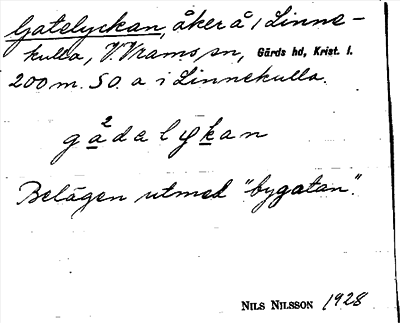 Gatelyckan, åker å 1 Linne-
kulla, V. Vrams sn, Gärds hd, Krist. l.
200 m. SO. a i Linnekulla.
2
gådalykan
Belägen utmed "bygatan".
NILS NILSSON 1928